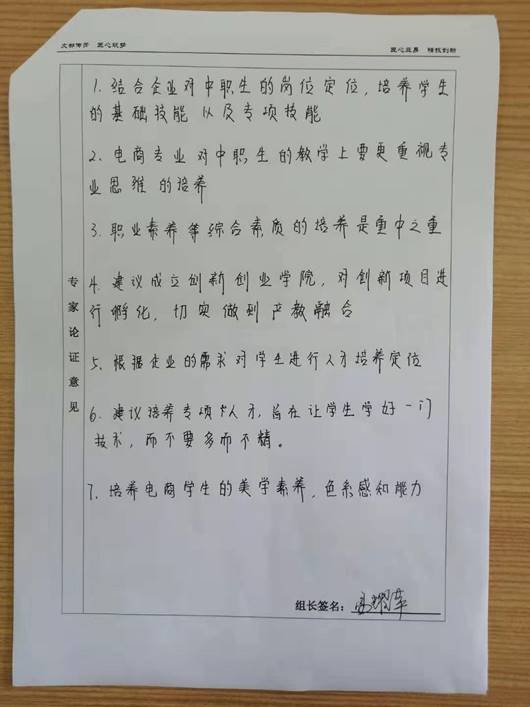 匠心筑梦
1. 结合企业对中职生的岗位定位，培养学生
的基础技能 以及专项技能
2. 电商专业对中职生的教学上要更重视专
业思维的培养
3. 职业素养等综合素质的培养是重中之重
4. 建议成立创新创业学院，对创新项目进
行孵化，切实做到产教融合
5. 根据企业的需求对学生进行人才培养定位
6. 建议培养专项人才，旨在让学生学好一门
技术，而不要多而不精。
7. 培养电商学生的美学素养，色系感知能力
专家论证意见
组长签名：